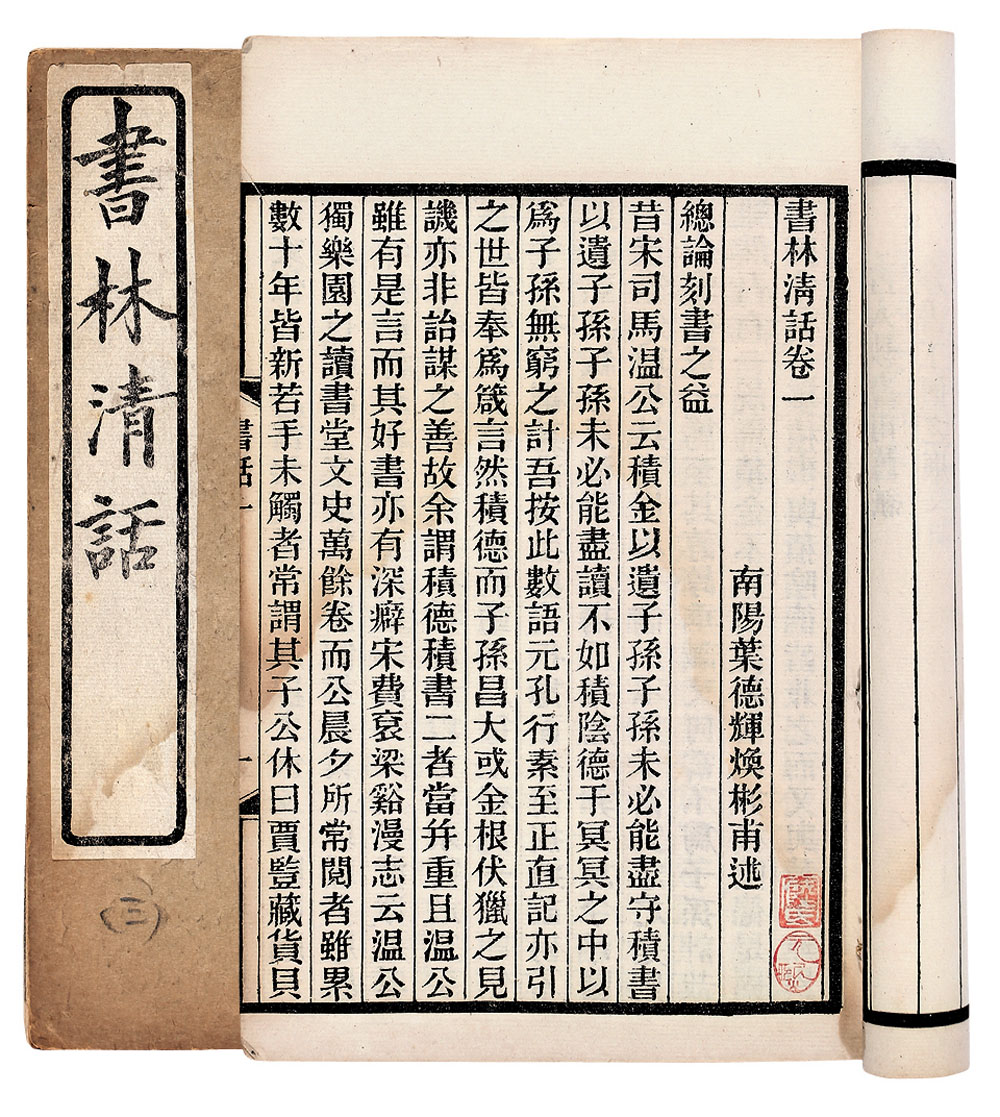 書林清話
(三)
書林清話卷一
南陽葉德輝煥彬甫述
總論刻書之益
昔宋司馬温公云積金以遺子孫子孫未必能盡守積書
以遺子孫子孫未必能盡讀不如積陰德于冥冥之中以
爲子孫無窮之計吾按此數語元孔行素至正直記亦引
之世皆奉爲箴言然積德而子孫昌大或金根伏獵之見
譏亦非詒謀之善故余謂積德積書二者當并重且温公
雖有是言而其好書亦有深癖宋費衮梁谿漫志云温公
獨樂園之讀書堂文史萬餘卷而公晨夕所常閱者雖累
數十年皆新若手未觸者常謂其子公休曰賈豎藏貨貝
書話一
一